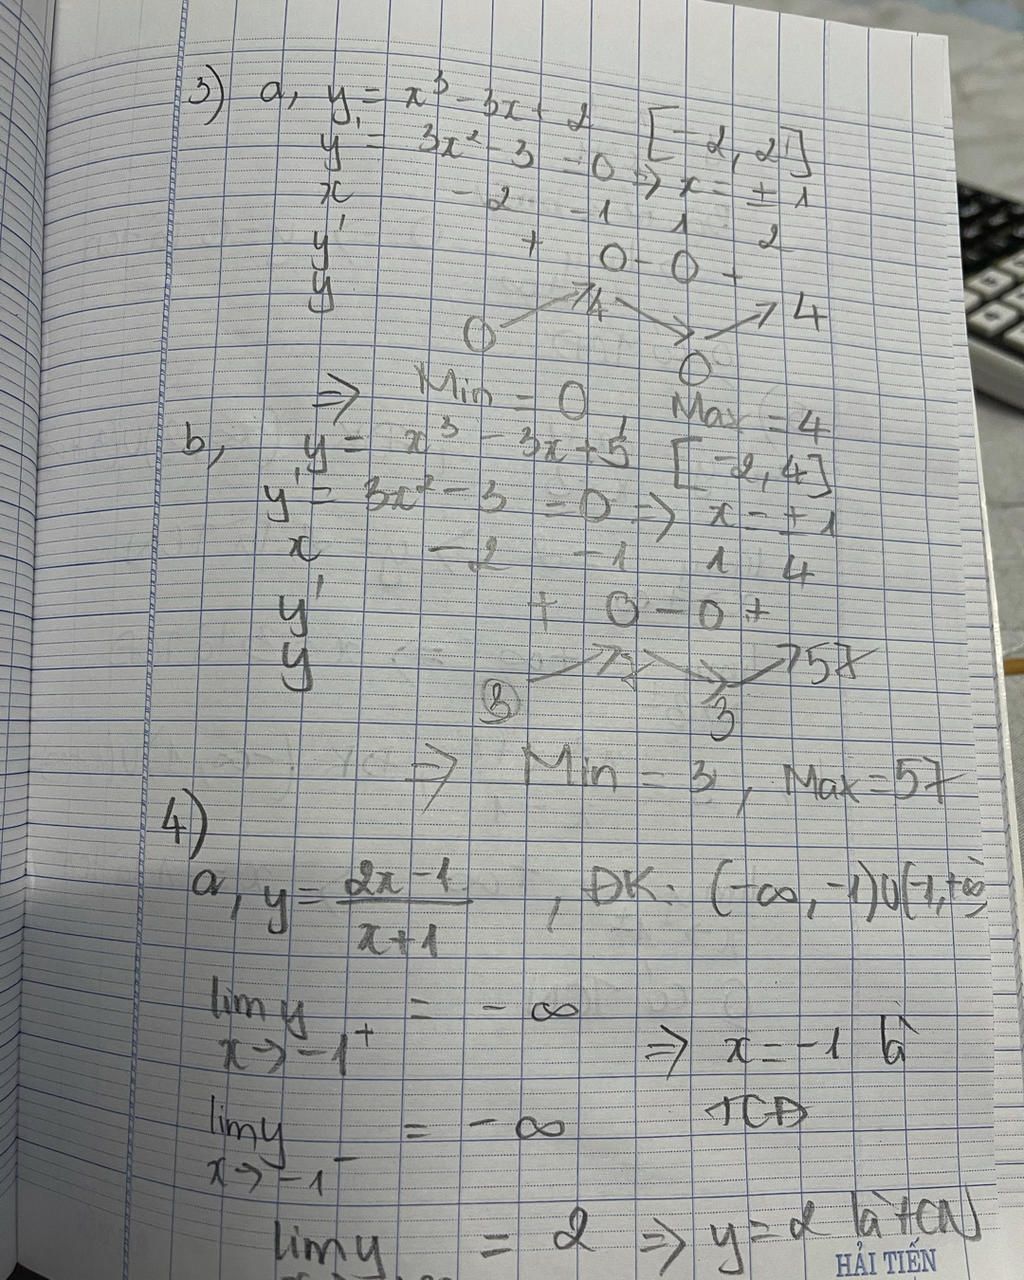 3) a, y = x³ - 3x + 2 [-2, 2]
y' = 3x² - 3 = 0 => x = ± 1
x -2 -1 1 2
y' + 0 - 0 +
y 0 ↗ 4 ↘ 0 ↗ 4
=> Min = 0, Max = 4
b, y = x³ - 3x + 5 [-2, 4]
y' = 3x² - 3 = 0 => x = ± 1
x -2 -1 1 4
y' + 0 - 0 +
y 3 ↗ 7 ↘ 3 ↗ 57
=> Min = 3, Max = 57
4)
a, y = (2x - 1)/(x + 1), ĐK: (-∞, -1)∪(-1, +∞)
lim y x → -1⁺ = - ∞ => x = -1 là
TCĐ
lim y x → -1⁻ = - ∞
lim y = 2 => y = 2 là TCN
HẢI TIẾN